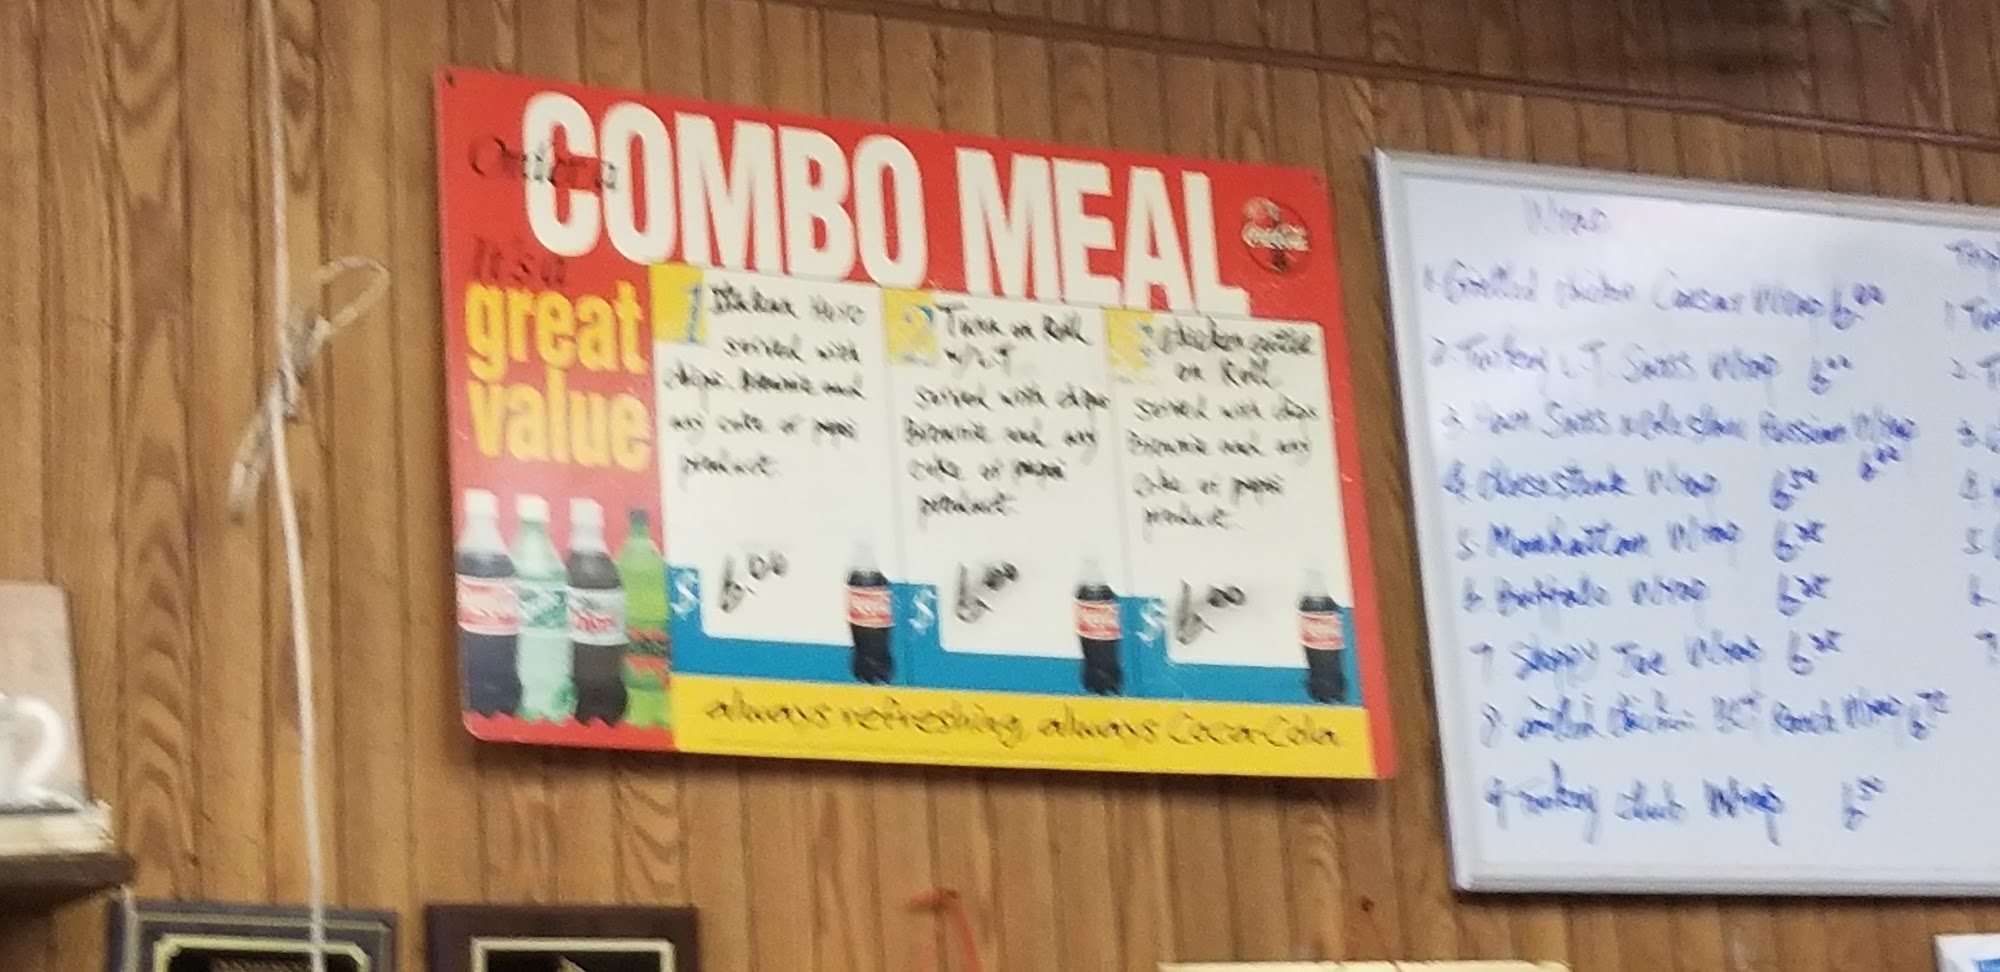 Order a
COMBO MEAL
It's a
great
value
1 Italian Hero
served with
chips, Brownie and
any coke or pepsi
product.
$ 6.00
2 Tuna on Roll
w/L.T.
served with chips
Brownie and any
coke or pepsi
product.
$ 6.00
Chicken cutlet
on Roll
served with chips
Brownie and any
coke or pepsi
product.
$ 6.00
always refreshing, always Coca-Cola
Wrap
1. Grilled chicken Caesar Wrap 6.00
2. Turkey L.T. Swiss Wrap 6.00
3. Ham Swiss coleslaw Russian Wrap
6.00
4. cheesesteak Wrap 6.50
5. Manhattan Wrap
6. Buffalo Wrap
7. Sloppy Joe Wrap
8. chicken Ranch Wrap
9. Turkey club Wrap 6.50